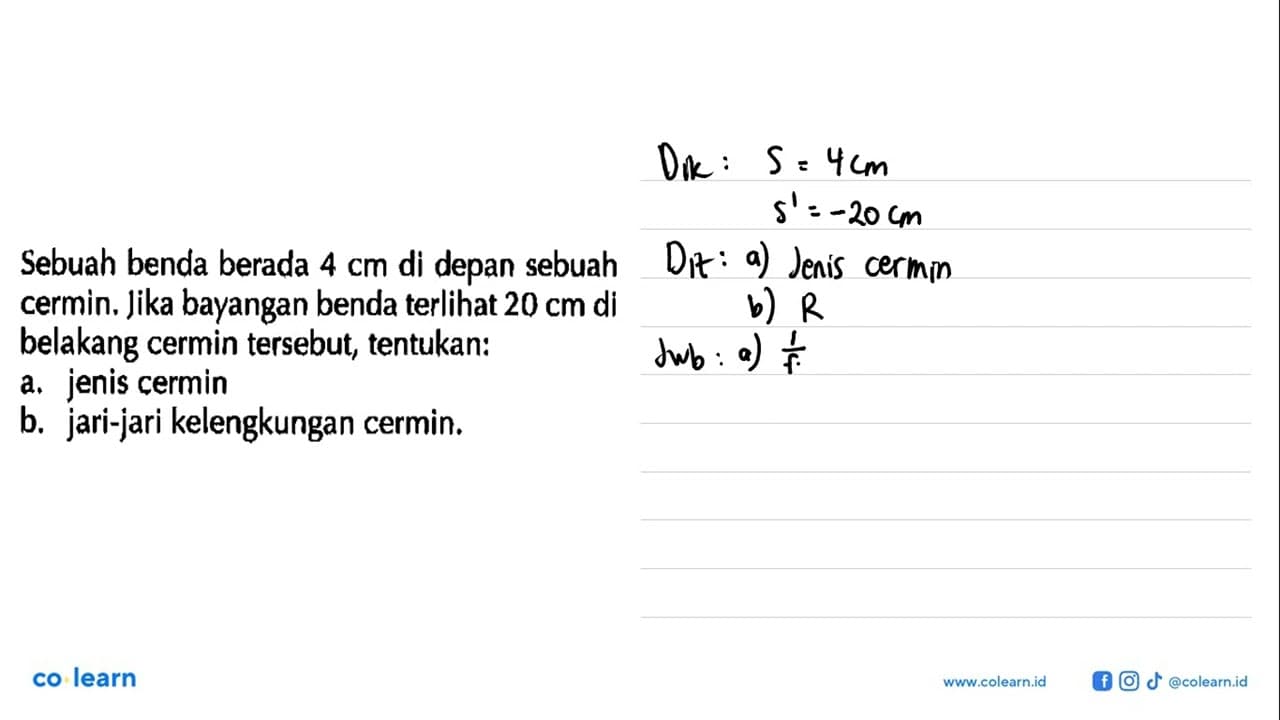 Sebuah benda berada 4 cm di depan sebuah
cermin. Jika bayangan benda terlihat 20 cm di
belakang cermin tersebut, tentukan:
a. jenis cermin
b. jari-jari kelengkungan cermin.
Dik : S = 4 cm
S' = -20 cm
Dit : a) Jenis cermin
b) R
Jwb : a) 1/f
co learn
www.colearn.id
@colearn.id